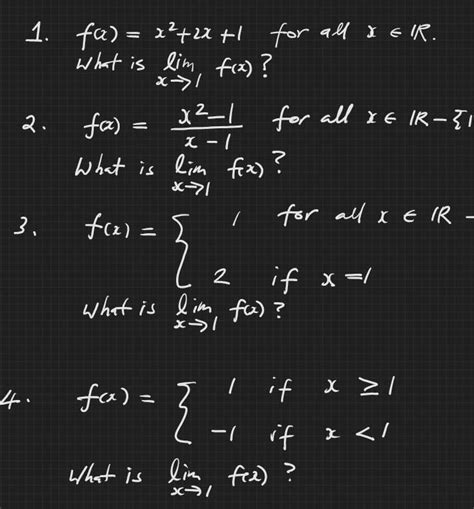 1. f(x) = x²+2x+1 for all x ∈ IR.
What is lim x→1 f(x)?
2. f(x) = x²-1 / x-1 for all x ∈ IR-{1
What is lim x→1 f(x)?
3. f(x) = { 1 for all x ∈ IR -
2 if x=1
What is lim x→1 f(x)?
4. f(x) = { 1 if x ≥1
-1 if x <1
What is lim x→1 f(x)?